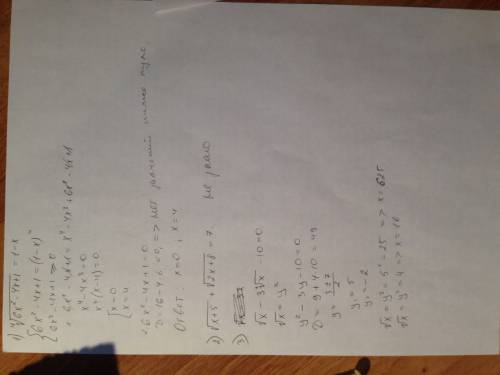 1) ⁴√6x²-4x+1 = 1-x
{6x²-4x+1=(1-x)⁴
{6x²-4x+1≥0
6x²-4x+1=x⁴-4x³+6x²-4x+1
x⁴-4x³=0
x³(x-4)=0
[x=0
[x=4
6x²-4x+1=0
D=16-4·6<0, => нет
Ответ: x=0; x=4
2) √x+5 + √2x+8 = 7. не знаю
3)
√x - 3⁴√x - 10=0
√x=y²
y²-3y-10=0
D=9+4·10=49
y=(3±7)/2
y₁=5
y₂=-2
√x=y²=5²=25 => x=625
√x=y²=4 => x=16